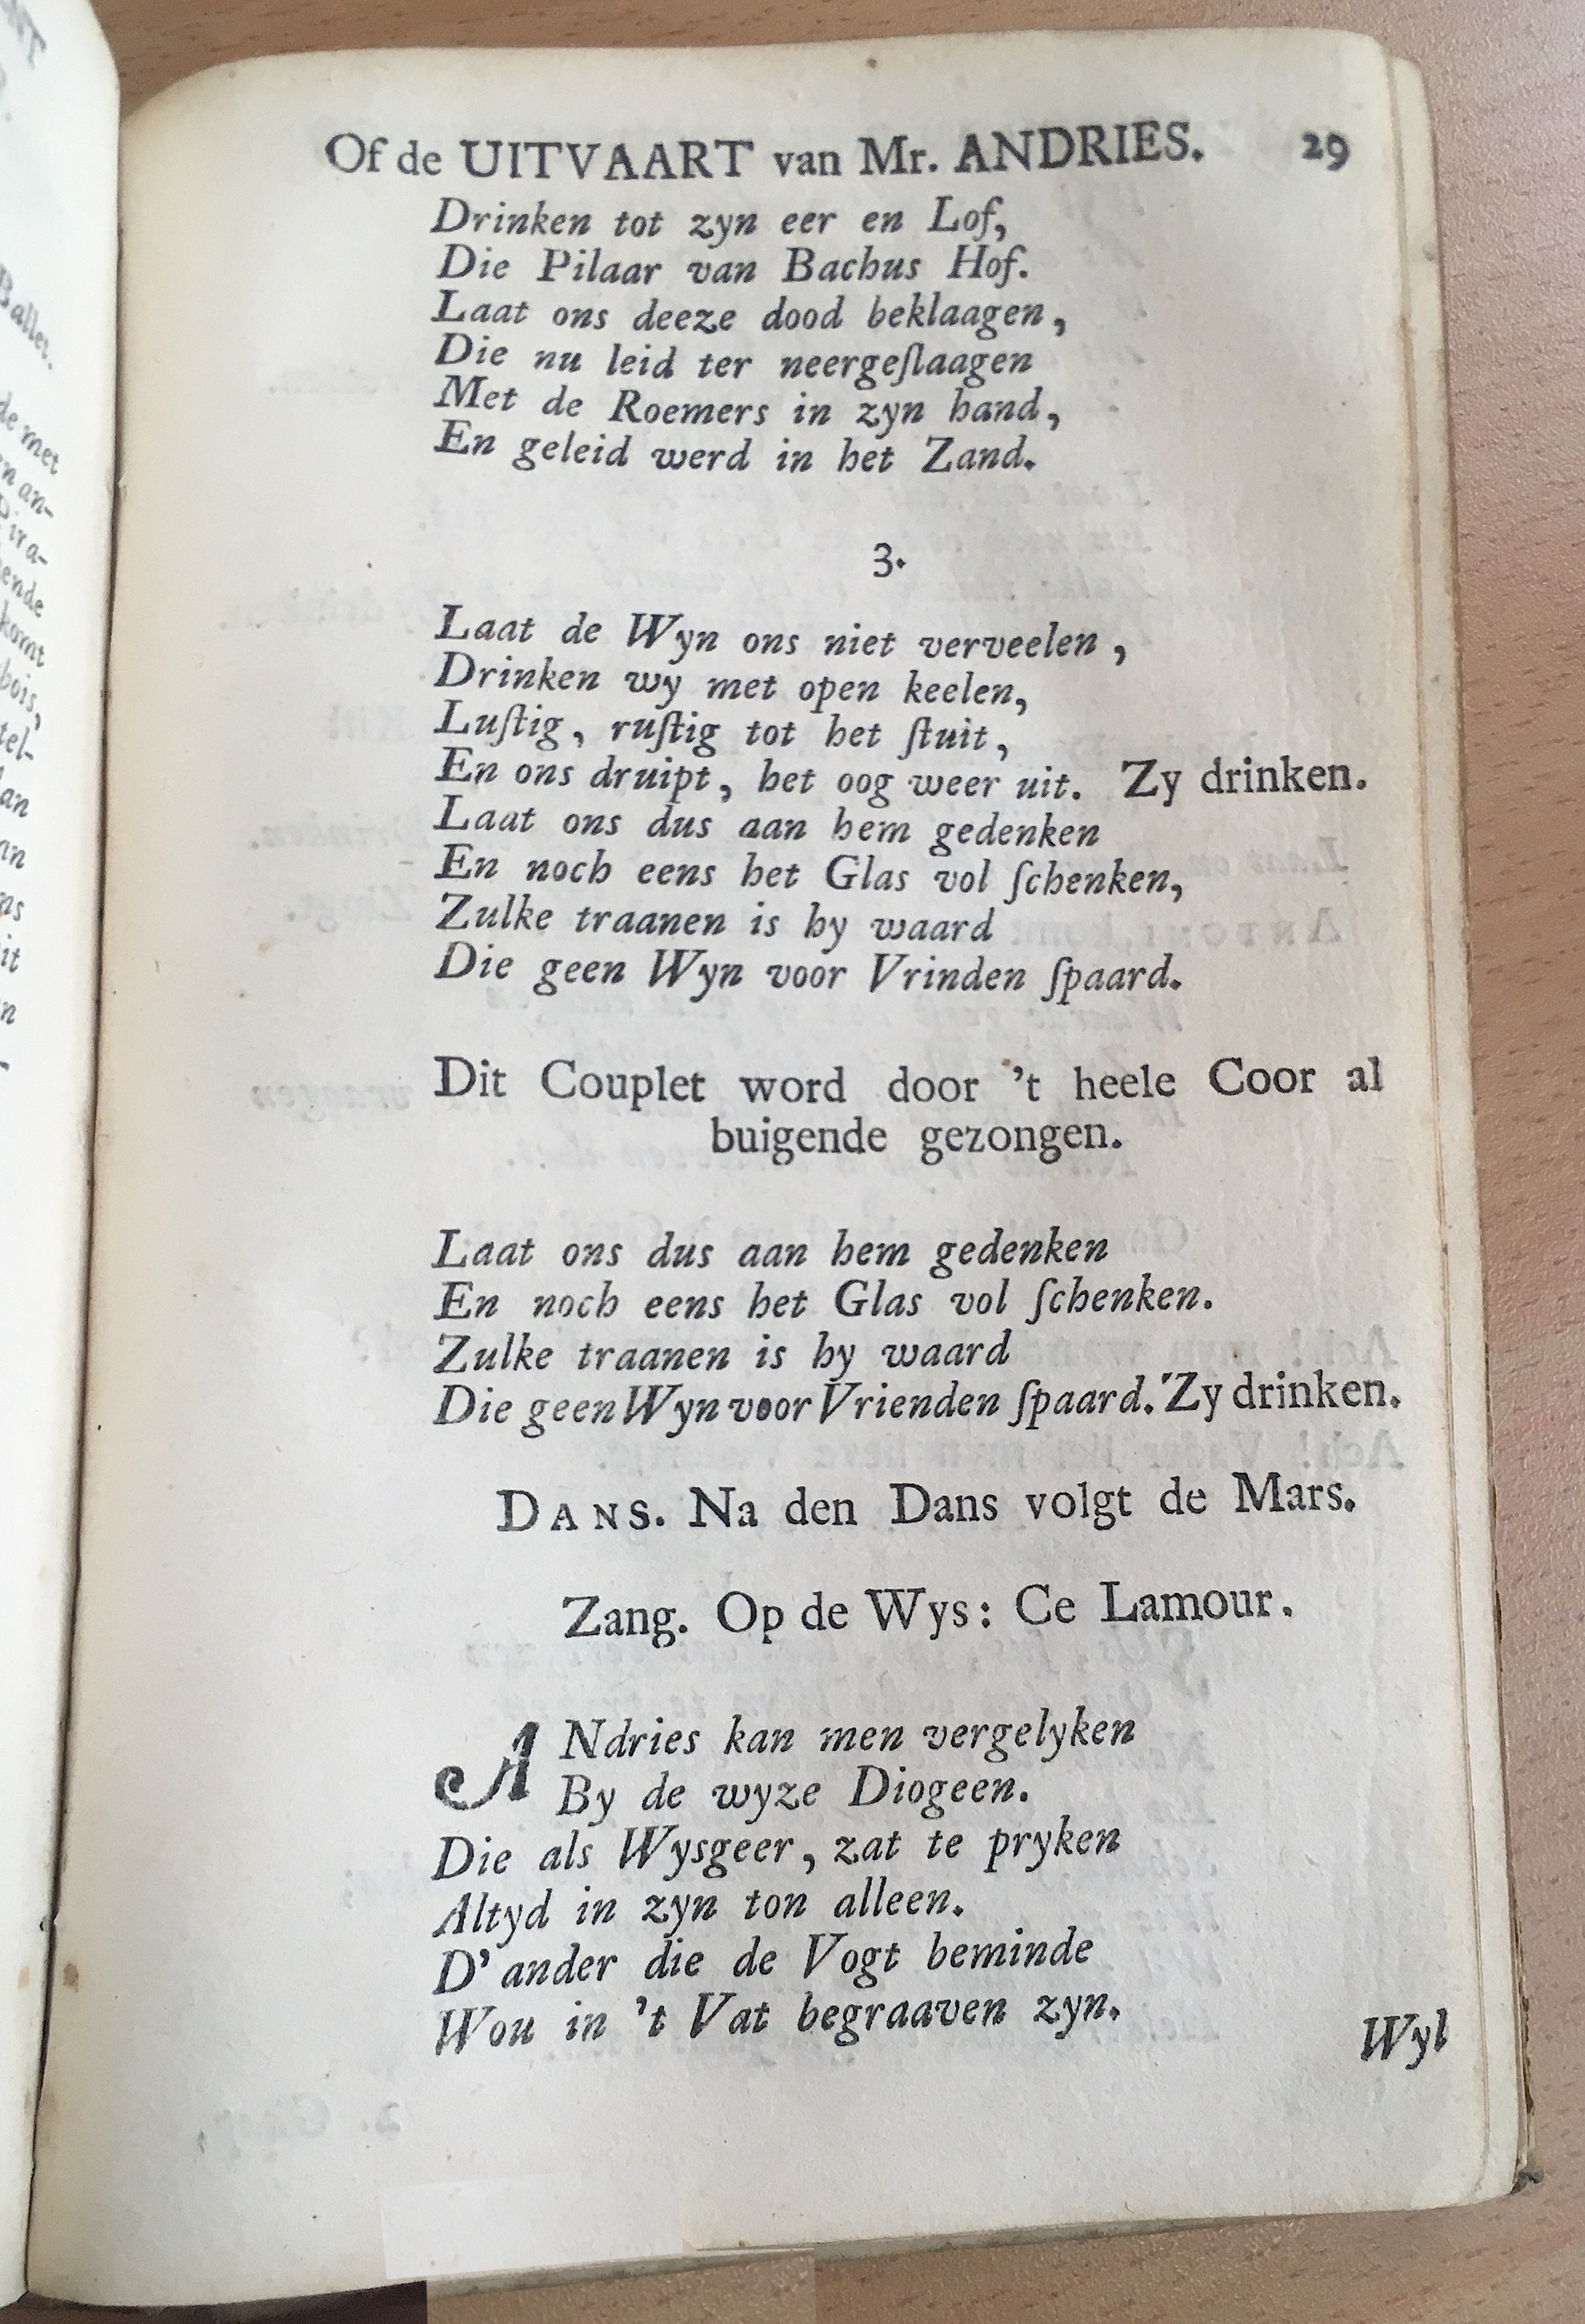 Of de UITVAART van Mr. ANDRIES. 29
Drinken tot zyn eer en Lof,
Die Pilaar van Bachus Hof.
Laat ons deeze dood beklaagen,
Die nu leid ter neergeſlaagen
Met de Roemers in zyn hand,
En geleid werd in het Zand.
3.
Laat de Wyn ons niet verveelen,
Drinken wy met open keelen,
Luſtig, ruſtig tot het ſtuit,
En ons druipt, het oog weer uit. Zy drinken.
Laat ons dus aan hem gedenken
En noch eens het Glas vol ſchenken,
Zulke traanen is hy waard
Die geen Wyn voor Vrinden ſpaard.
Dit Couplet word door 't heele Coor al
buigende gezongen.
Laat ons dus aan hem gedenken
En noch eens het Glas vol ſchenken.
Zulke traanen is hy waard
Die geen Wyn voor Vrienden ſpaard. Zy drinken.
DANS. Na den Dans volgt de Mars.
Zang. Op de Wys: Ce Lamour.
ANdries kan men vergelyken
By de wyze Diogeen.
Die als Wysgeer, zat te pryken
Altyd in zyn ton alleen.
D'ander die de Vogt beminde
Wou in 't Vat begraaven zyn.
Wyl
Ballet.
de met
an-
ende
komt
bois,
tel-
an